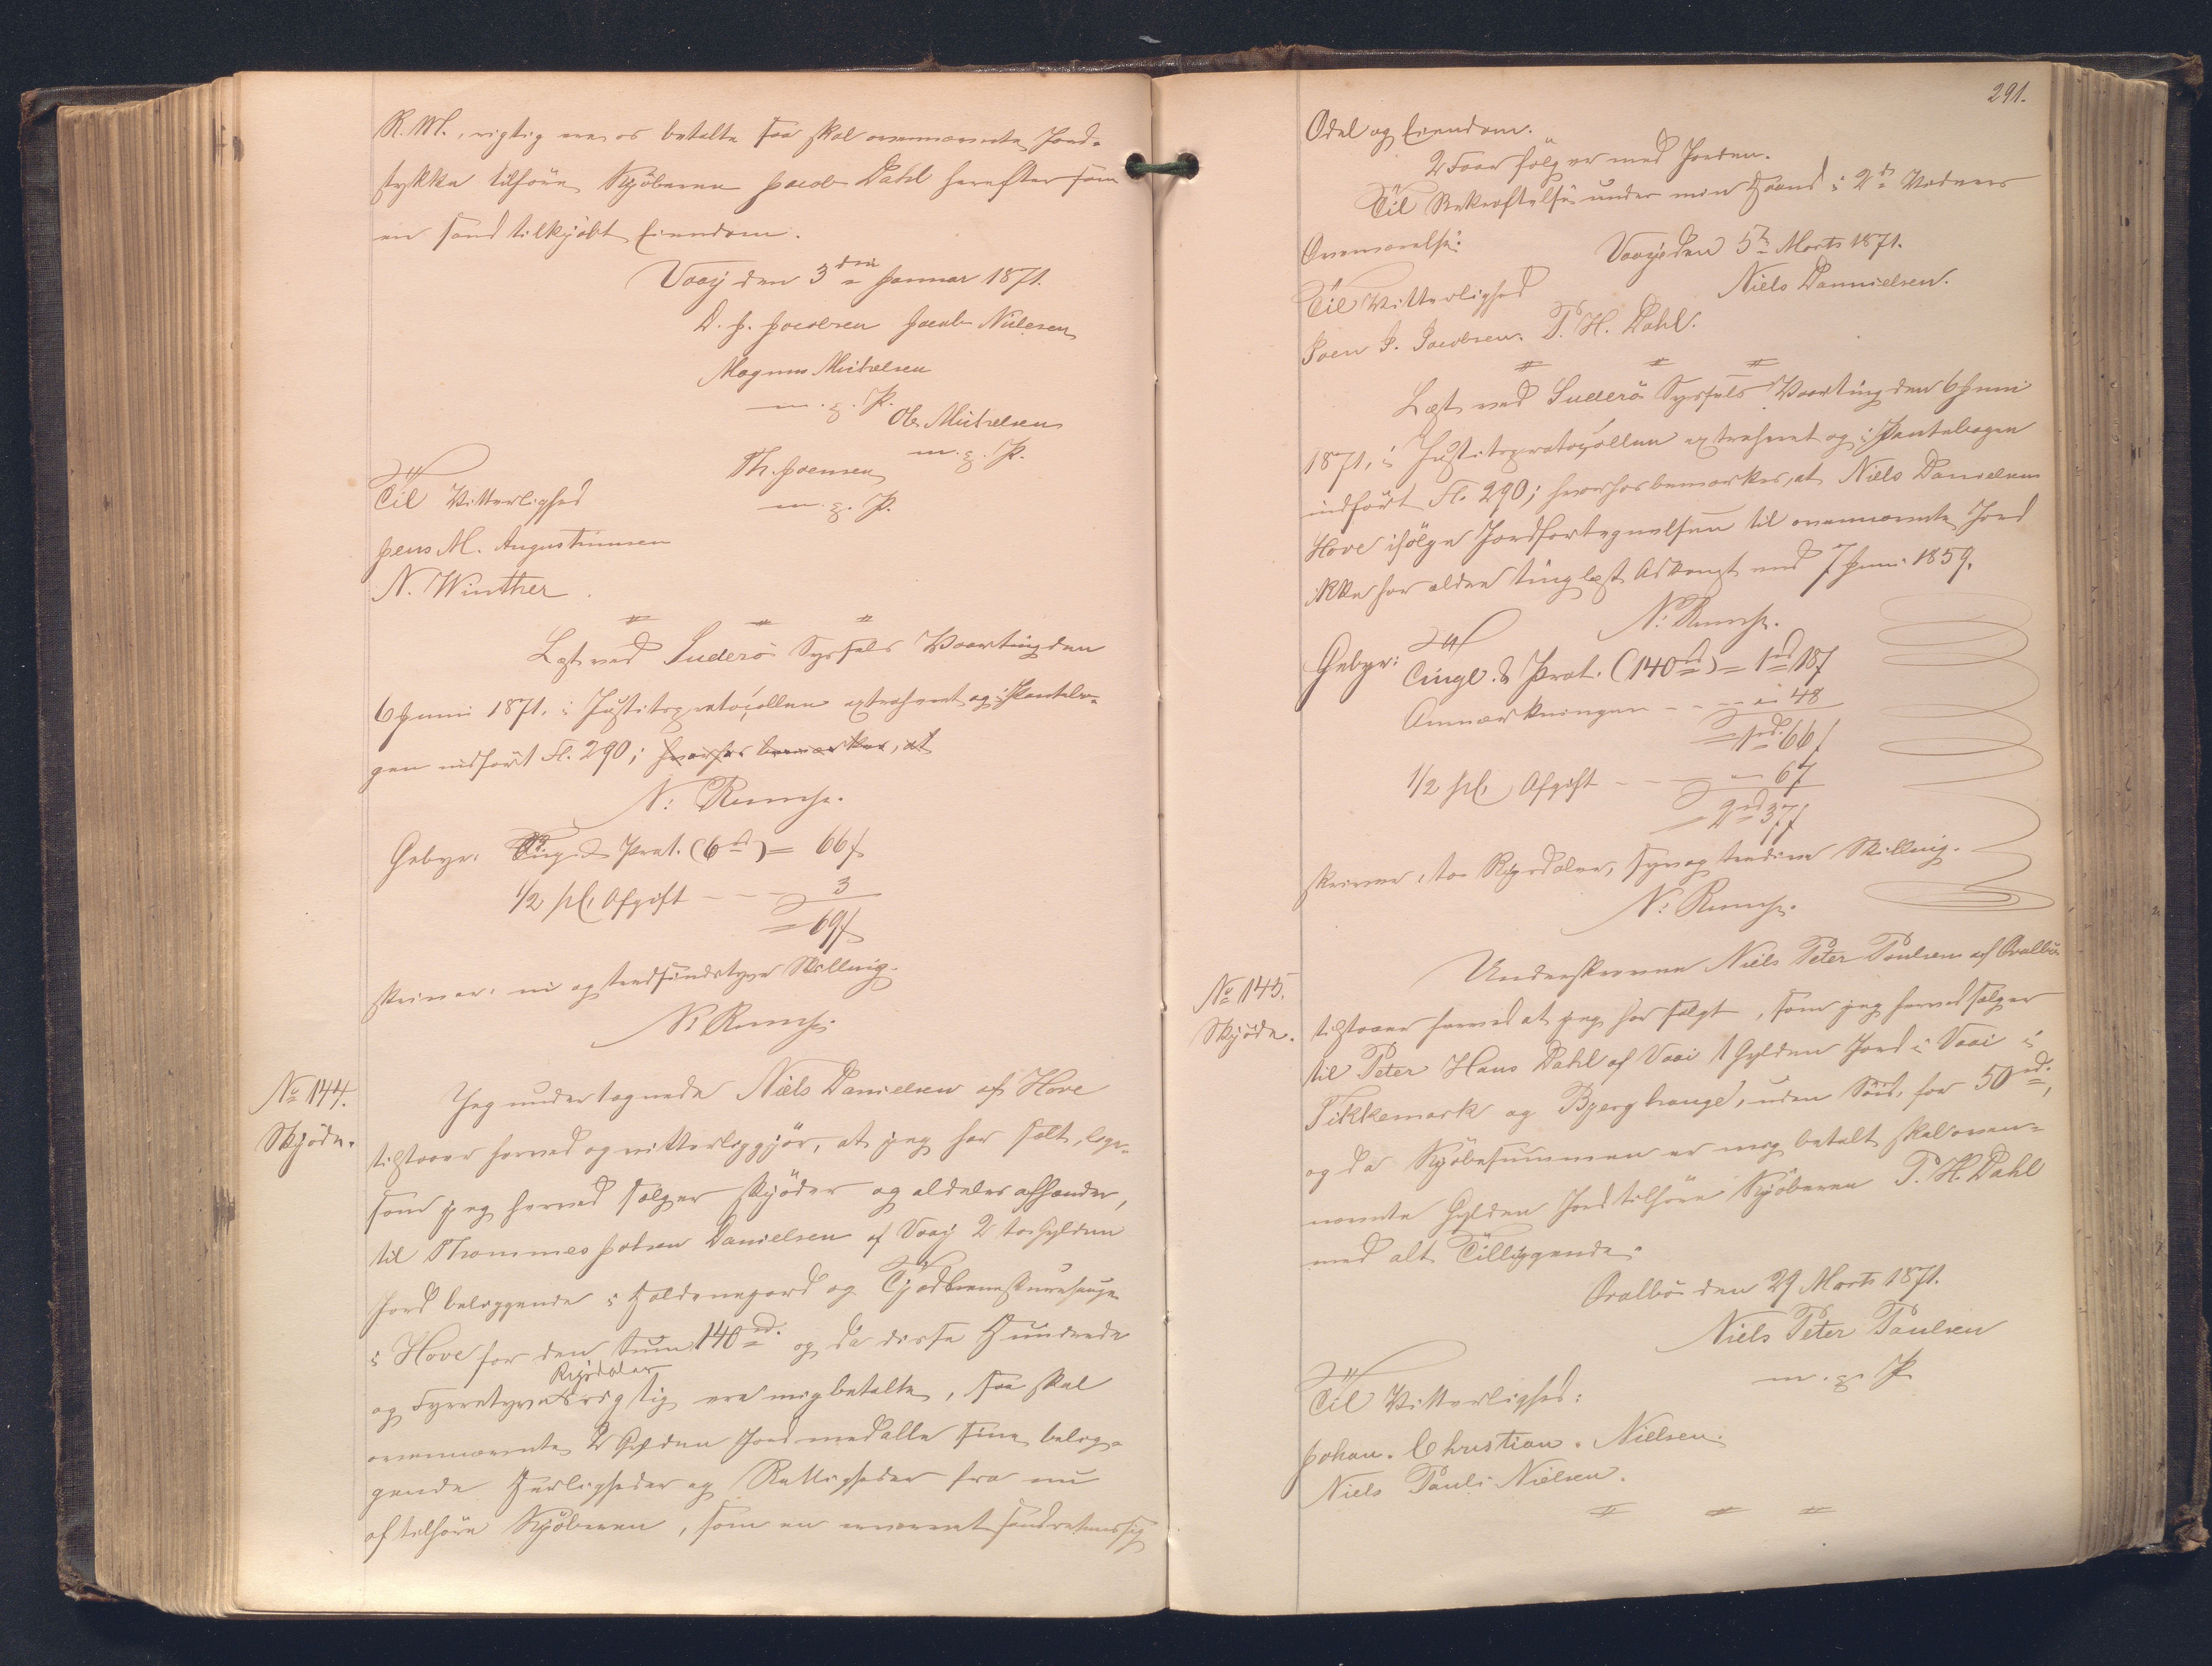 R. M., rigtig ere os betalte saa skal ovennævnte Jord-
stykke tilhøre Kjøberen Jacob Dahl herefter som
en sand tilkjøbt Eiendom.
Vaag den 3die Januar 1871.
D. J. Jacobsen Jacob Nielsen
Magnus Michelsen
m. g. P.
Ole Michelsen
m. g. P.
Th. Joensen
m. g. P.
Til Vitterlighed
Jens M. Augustinusen
N. Winther
Læst ved Suderø Syssels Vaarting den
6 Juni 1871, i Justitsprotocollen extraheret og i Pantebo-
gen indført Fl. 290; hvorhos bemærkes, at
Gebyr: Tingl. & Prot. (6 rd) = 66 ſ
1/2 pCt. Afgift - - 3
= 69 ſ
skriver: ni og tredsindstyve Skilling.
No 144.
Skjøde.
Jeg undertegnede Niels Danielsen af Hove
tilstaaer herved og vitterliggjør, at jeg har solt, lige-
som jeg herved sælger skjøder og aldeles afhænder,
til Thommes Joesen Danielsen af Vaag 2 to Gylden
Jord beliggende i Holdenegard og
i Hove for den Sum 140 rd. og da disse Hundrede
og Fyrretyve Rigsdaler rigtig ere mig betalte, saa skal
ovennævnte 2 Gylden Jord med alle sine belig-
gende Herligheder og Rettigheder fra nu
af tilhøre Kjøberen, som en erværvet
291.
Odel og Eiendom.
2 Faar følger med Jorden.
Til Bekræftelse under min Haand i 2de Vidners
Overværelse.
Vaag den 5te Marts 1871.
Niels Dannielsen.
Til Vitterlighed
Joen J. Jacobsen. P. H. Dahl.
Læst ved Suderø Syssels Vaarting den 6 Juni
1871, i Justitsprotocollen extraheret og i Pantebogen
indført Fl. 290; hvorhos bemærkes, at Niels Danielsen
Hove ifølge Jordfortegnelsen til ovennævnte Jord
ikke har ældre tinglæst Adkomst end 7 Juni 1859.
Gebyr: Tingl. & Prot. (140 rd) = 1 rd 18 ſ
Anmærkningen - - - 48
= 1 rd 66 ſ
1/2 pCt. Afgift - - - 67
= 2 rd 37 ſ
skriver: to Rigsdaler, syv og tredive Skilling.
No 145.
Skjøde.
Underskrevne Niels Peter Poulsen af Qvalbø
tilstaaer herved at jeg har solgt, som jeg herved sælger
til Peter Hans Dahl af Vaai 1 Gylden Jord i Vaai i
Tikkemark og Bjerghauge, uden Søid, for 50 rd.,
og da Kjøbesummen er mig betalt skal oven-
nævnte Gylden Jord tilhøre Kjøberen P. H. Dahl
med alt Tilliggende.
Qvalbø den 29 Marts 1871.
Niels Peter Poulsen
m. g. P.
Til Vitterlighed:
Johan. Christian. Nielsen.
Niels Pauli Nielsen.